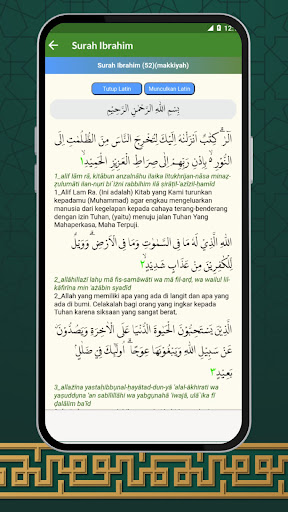 12:..
Surah Ibrahim
Surah Ibrahim (52)(makkiyah)
Tutup Latin
Munculkan Latin
بِسْمِ اللّٰهِ الرَّحْمٰنِ الرَّحِيْمِ
الۤرٰ ۗ كِتٰبٌ اَنْزَلْنٰهُ اِلَيْكَ لِتُخْرِجَ النَّاسَ مِنَ الظُّلُمٰتِ اِلَى
النُّوْرِ ەۙ بِاِذْنِ رَبِّهِمْ اِلٰى صِرَاطِ الْعَزِيْزِ الْحَمِيْدِۙ ١
1_alif lām rā, kitābun anzalnāhu ilaika litukhrijan-nāsa minaẓ-
ẓulumāti ilan-nụri bi`iżni rabbihim ilā ṣirāṭil-'azīzil-ḥamīd
1_Alif Lam Ra. (Ini adalah) Kitab yang Kami turunkan
kepadamu (Muhammad) agar engkau mengeluarkan
manusia dari kegelapan kepada cahaya terang-benderang
dengan izin Tuhan, (yaitu) menuju jalan Tuhan Yang
Mahaperkasa, Maha Terpuji.
اللّٰهِ الَّذِيْ لَهٗ مَا فِى السَّمٰوٰتِ وَمَا فِى الْاَرْضِۗ وَوَيْلٌ
لِّلْكٰفِرِيْنَ مِنْ عَذَابٍ شَدِيْدٍۙ ٢
2_allāhillażī lahụ mā fis-samāwāti wa mā fil-arḍ, wa wailul lil-
kāfirīna min 'ażābin syadīd
2_Allah yang memiliki apa yang ada di langit dan apa yang
ada di bumi. Celakalah bagi orang yang ingkar kepada
Tuhan karena siksaan yang sangat berat,
الَّذِيْنَ يَسْتَحِبُّوْنَ الْحَيٰوةَ الدُّنْيَا عَلَى الْاٰخِرَةِ وَيَصُدُّوْنَ
عَنْ سَبِيْلِ اللّٰهِ وَيَبْغُوْنَهَا عِوَجًاۗ اُولٰۤىِٕكَ فِيْ ضَلٰلٍۢ
بَعِيْدٍ ٣
3_allażīna yastaḥibbụnal-ḥayātad-dun-yā 'alal-ākhirati wa
yaṣuddụna 'an sabīlillāhi wa yabgụnahā 'iwajā, ulā`ika fī
ḍalālim ba'īd